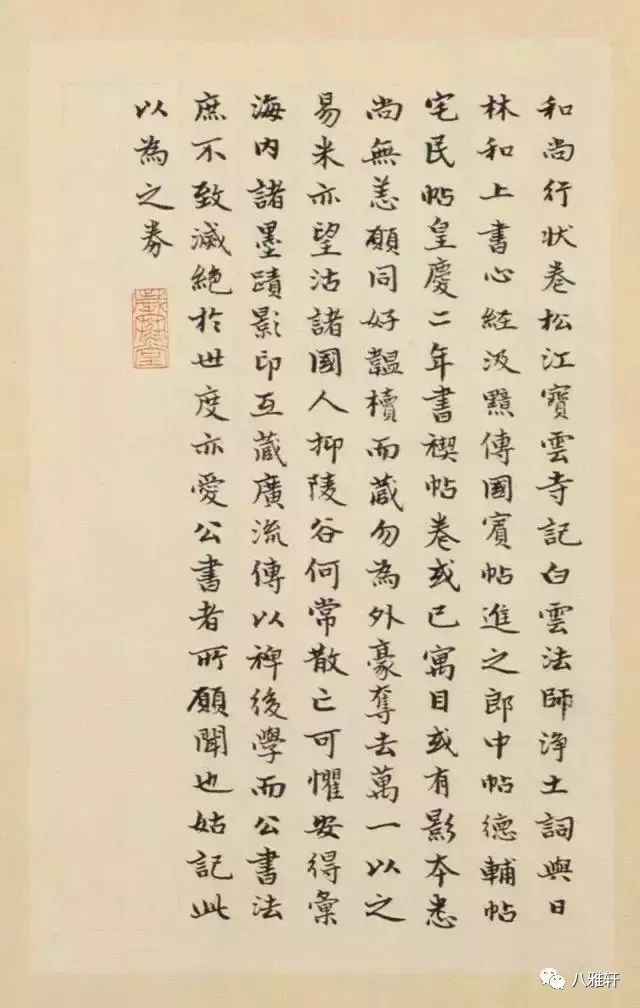 和尚行狀卷松江寶雲寺記白雲法師淨土詞與日
林和上書心經汲黯傳國賓帖進之郎中帖德輔帖
宅民帖皇慶二年書禊帖卷或已寓目或有影本悉
尚無恙願同好韞櫝而藏勿為外豪奪去萬一以之
易米亦望沽諸國人抑陵谷何常散亡可懼安得彙
海內諸墨蹟影印互藏廣流傳以裨後學而公書法
庶不致滅絕於世度亦愛公書者所願聞也姑記此
以為之券
八雅轩